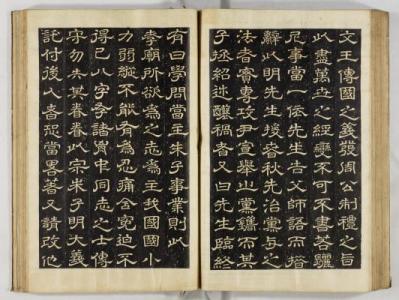 文王傳國之義發周公制禮之旨
此盡萬世之經變不可不書答驪
尼事當一依先生告父師語而措
辭此明先生授春秋先治黨與之
法者實專攻尹宣舉山黨鑴而其
子拯紹述釀禍者又曰先生臨終
有曰學問當主朱子事業則以
孝廟所欲爲之志爲主我國國小
力弱縱不能有爲忍痛含寃迫不
得已八字令諸 中同志之士傳
守勿失其眷眷以宗朱子明大義
託付後人者恐當畧著又請改他